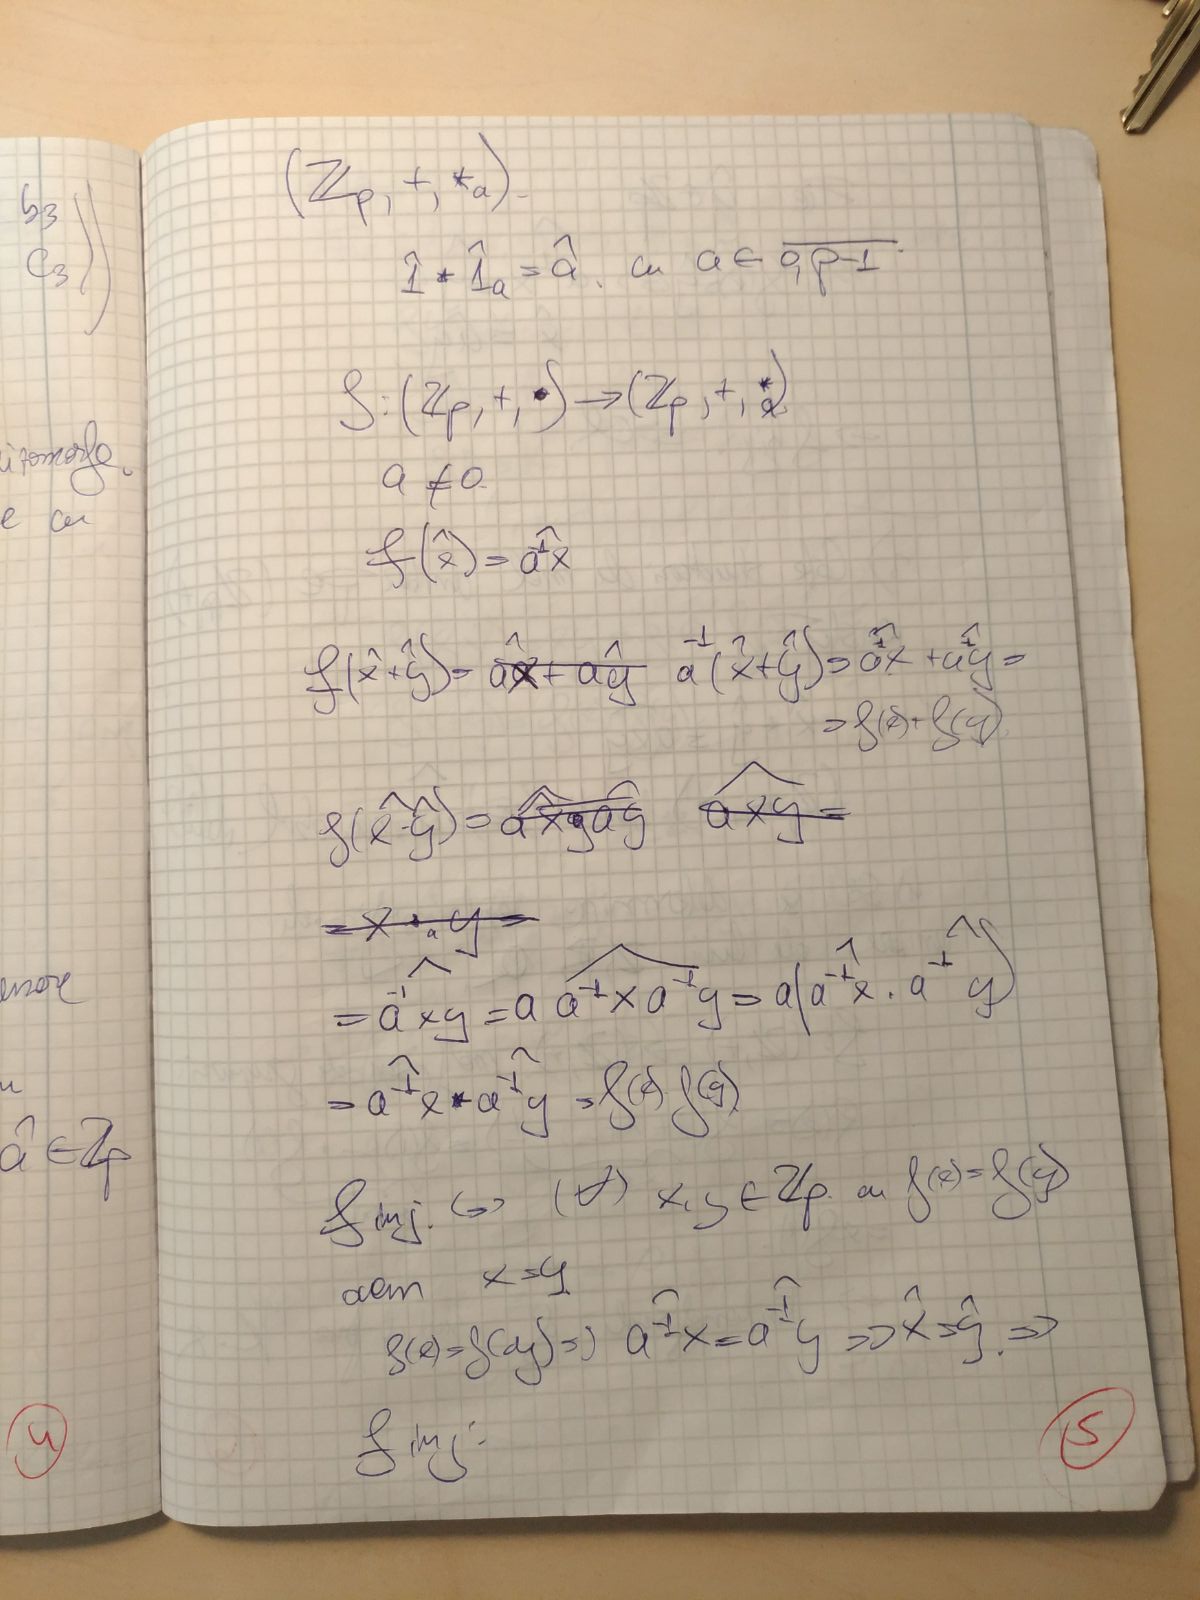 b₃
c₃
izomorfe.
e cu
â ∈ ℤp
4
(ℤp, +, *a).
1̂ * 1̂a = â. cu a ∈ 0,p-1
f: (ℤp, +, •) → (ℤp, +, *a)
a ≠ 0
f(x̂) = a⁻¹x̂
f(x̂+ŷ) = ax̂ + aŷ a⁻¹(x̂+ŷ) = a⁻¹x̂ + a⁻¹ŷ =
= f(x) + f(y)
f(x̂·ŷ) = axyaŷ axy =
= x *a y =
= a⁻¹xy = a a⁻¹xa⁻¹y = a(a⁻¹x̂ . a⁻¹ŷ)
= a⁻¹x̂ * a⁻¹ŷ = f(x) f(y)
f inj. (=) (∀) x,y ∈ ℤp cu f(x) = f(y)
avem x=y
f(x) = f(y) => a⁻¹x̂ = a⁻¹ŷ => x̂ = ŷ. =>
f inj.
5